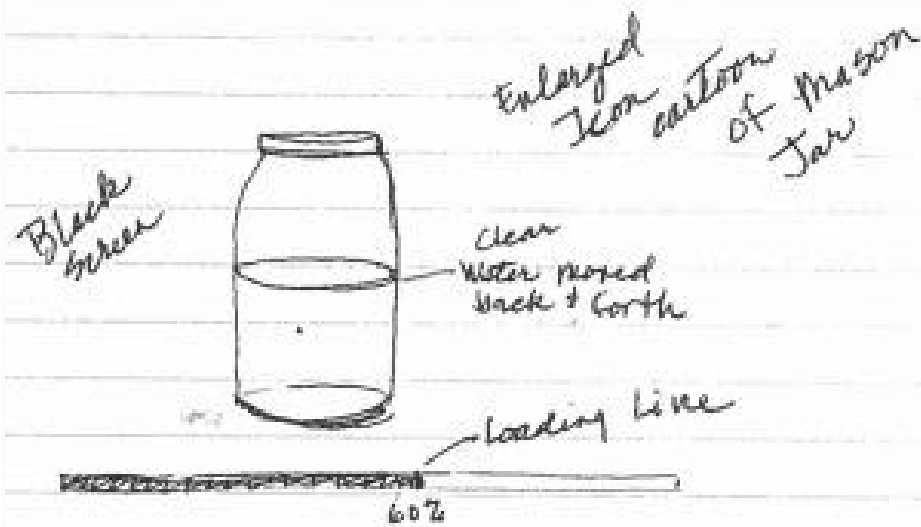 Enlarged
Icon cartoon
of Mason
Jar
Black
Screen
Clear
Water moved
back & forth
Loading Line
60%